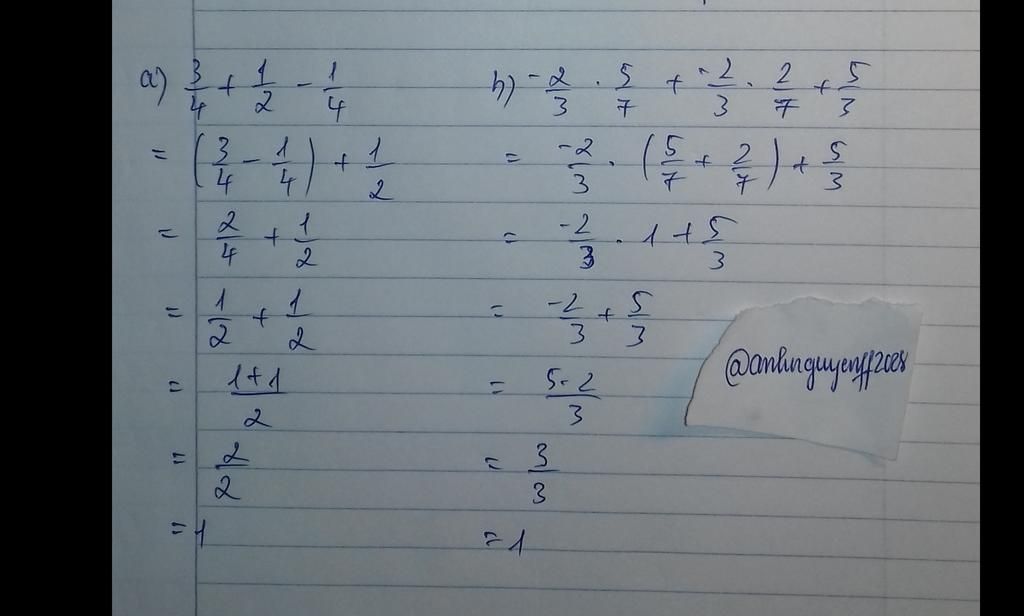 a) 3/4 + 1/2 - 1/4
= (3/4 - 1/4) + 1/2
= 2/4 + 1/2
= 1/2 + 1/2
= (1+1)/2
= 2/2
= 1
b) -2/3 . 5/7 + -2/3 . 2/7 + 5/3
= -2/3 . (5/7 + 2/7) + 5/3
= -2/3 . 1 + 5/3
= -2/3 + 5/3
= (5-2)/3
= 3/3
= 1
@anhnguyenff2008